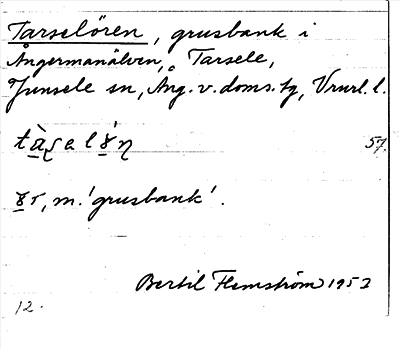 Tarselören, grusbank i
Ångermanälven, Tarsele,
Junsele sn, Ång. v. doms. tg,
57.
ör, m. 'grusbank'.
Bertil Flemström 1952
12.